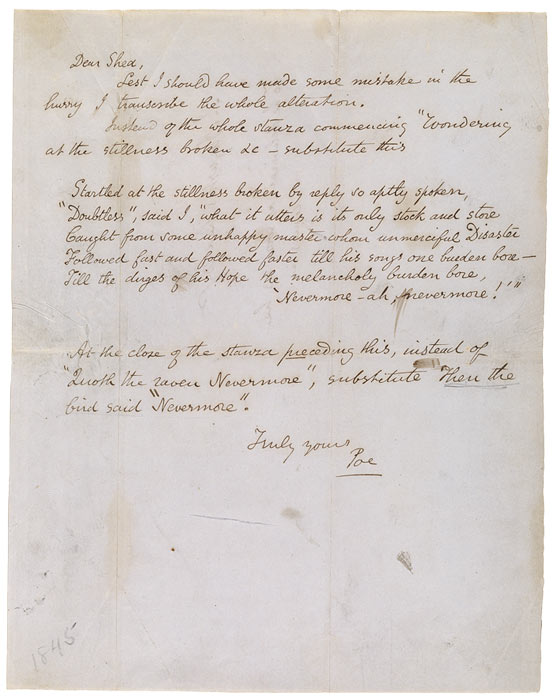 Dear Shea,
Lest I should have made some mistake in the
hurry I transcribe the whole alteration.
Instead of the whole stanza commencing "Wondering
at the stillness broken &c — substitute this
Startled at the stillness broken by reply so aptly spoken,
"Doubtless", said I, "what it utters is its only stock and store
Caught from some unhappy master whom unmerciful Disaster
Followed fast and followed faster till his songs one burden bore —
Till the dirges of his Hope the melancholy burden bore,
'Nevermore — ah, nevermore!'"
At the close of the stanza preceding this, instead of
"Quoth the raven Nevermore", substitute Then the
bird said "Nevermore".
Truly yours
Poe
1845